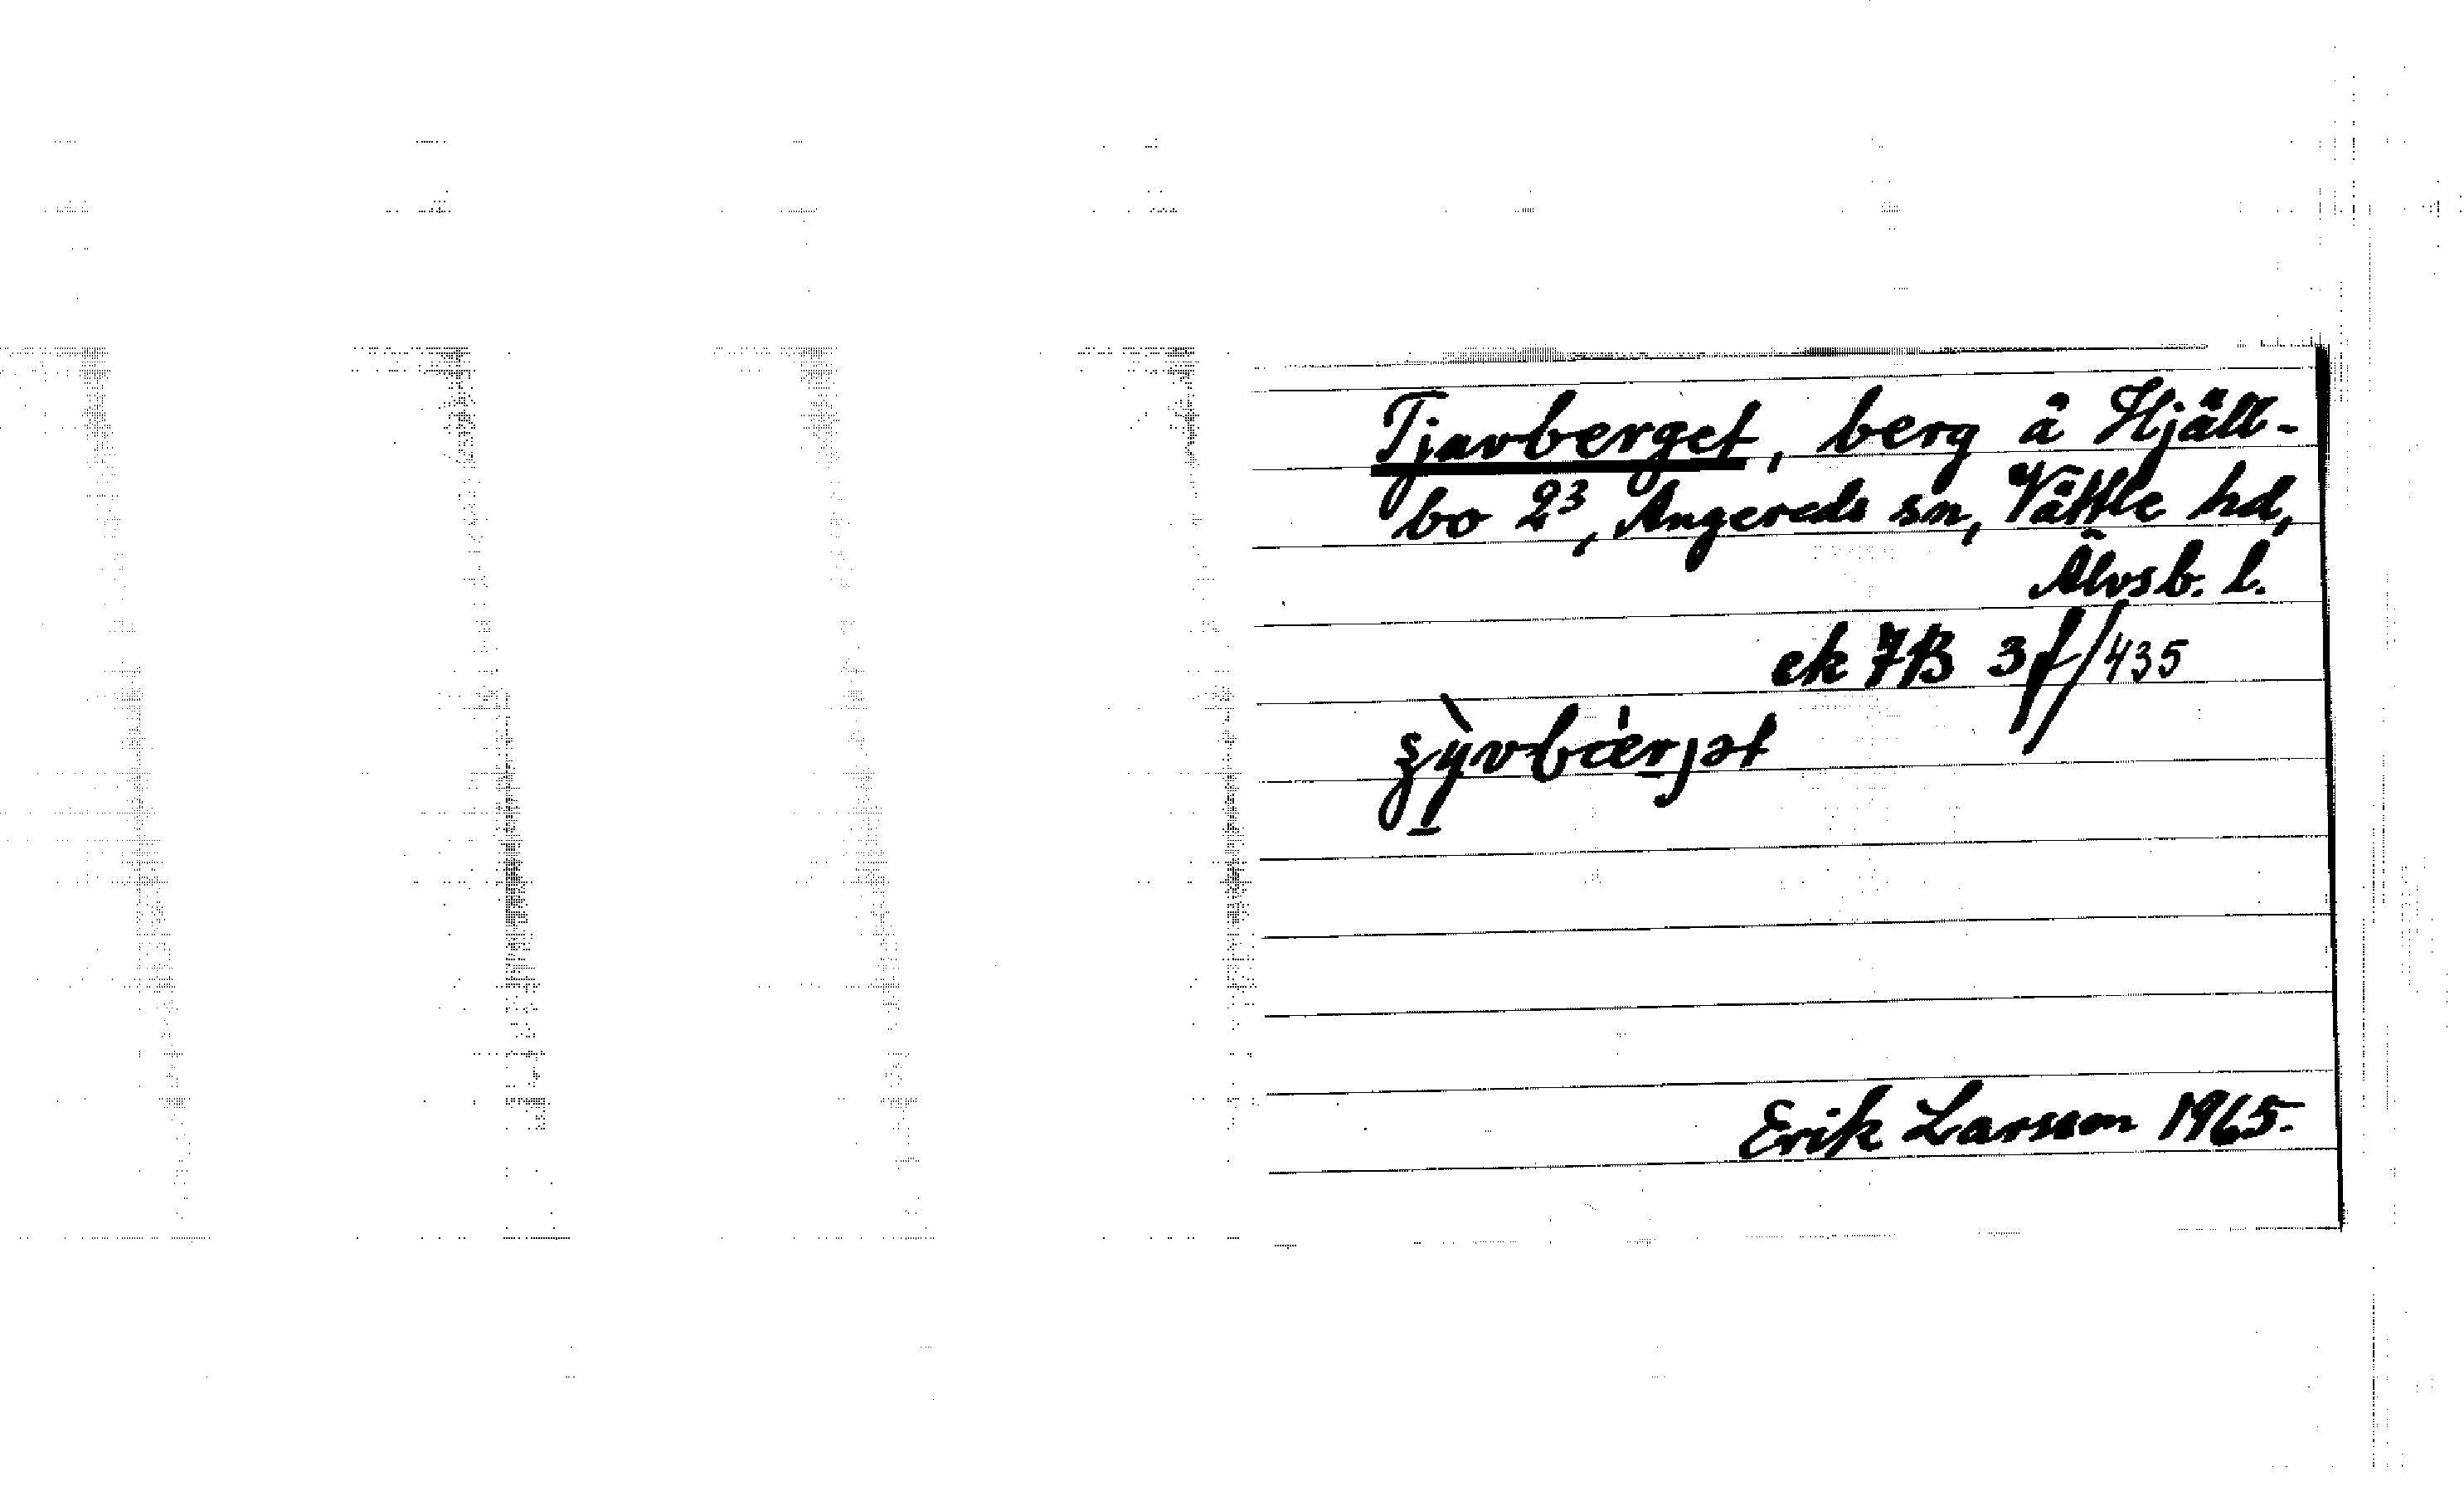 Tjuvberget, berg å Hjäll-
bo 2³, Angereds sn, Vättle hd,
Älvsb. l.
ek 7B 3f/435
Erik Larsson 1965.